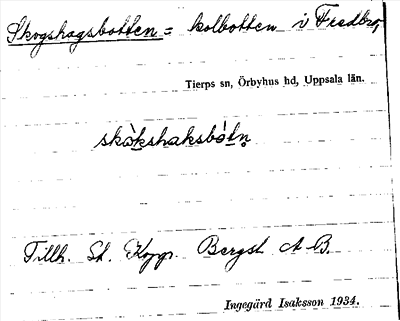 Skogshagsbotten = kolbotten i Fredbro,
Tierps sn, Örbyhus hd, Uppsala län.
skòkshaksbòtn̥
Tillh. St. Koppr. Bergsl. A B.
Ingegärd Isaksson 1934.